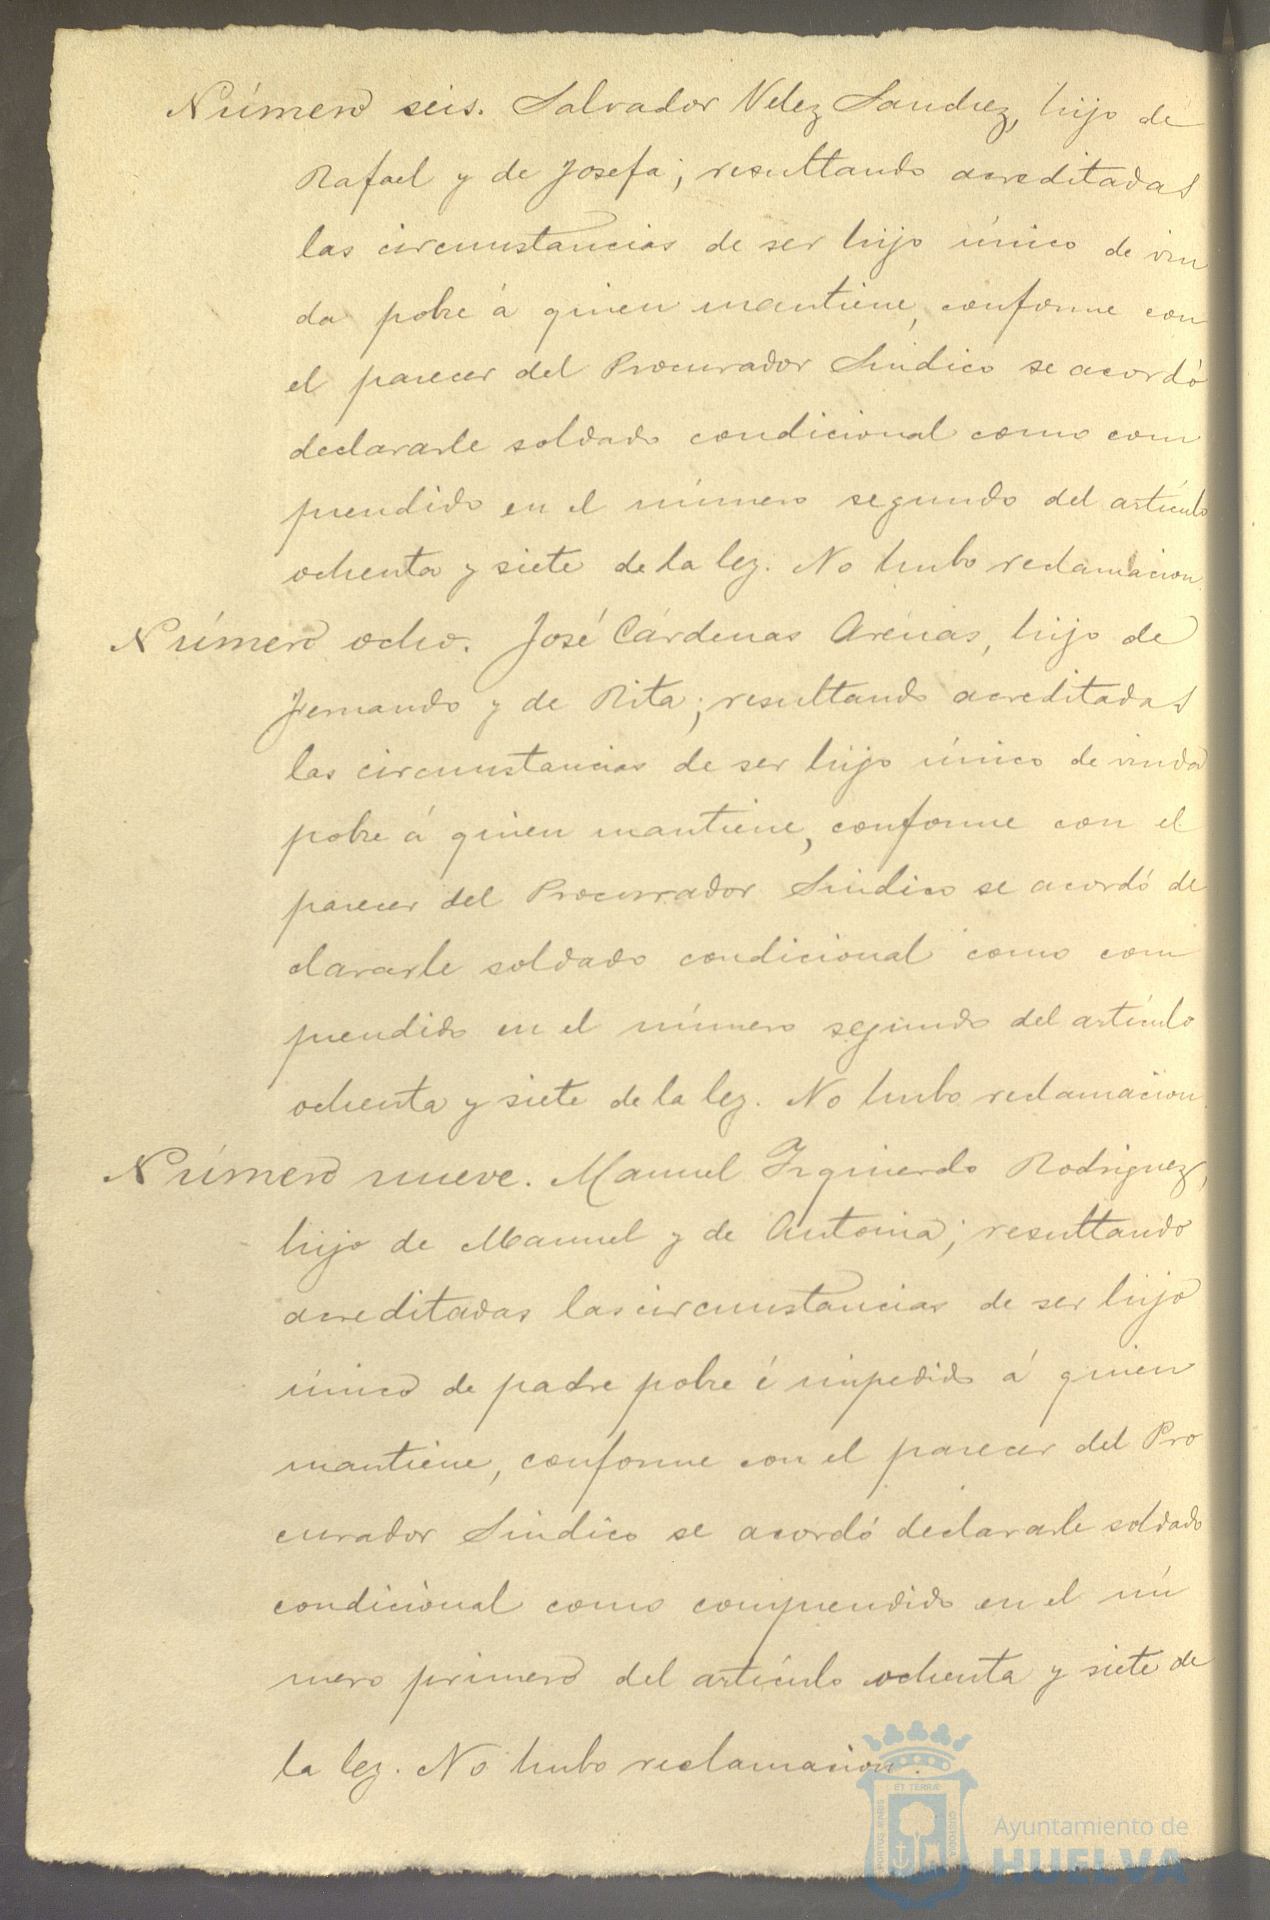 Número seis. Salvador Velez Sanchez, hijo de
Rafael y de Josefa; resultando acreditadas
las circunstancias de ser hijo único de viu
da pobre á quien mantiene, conforme con
el parecer del Procurador Sindico se acordó
declararle soldado condicional como com
prendido en el número segundo del artículo
ochenta y siete de la ley. No hubo reclamacion
Número ocho. José Cárdenas Arenas, hijo de
Fernando y de Rita; resultando acreditadas
las circunstancias de ser hijo único de viuda
pobre á quien mantiene, conforme con el
parecer del Procurador Sindico se acordó de
clararle soldado condicional como com
prendido en el número segundo del artículo
ochenta y siete de la ley. No hubo reclamacion.
Número nueve. Manuel Izquierdo Rodriguez,
hijo de Manuel y de Antonia; resultando
acreditadas las circunstancias de ser hijo
único de padre pobre é impedido á quien
mantiene, conforme con el parecer del Pro
curador Sindico se acordó declararle soldado
condicional como comprendido en el nú
mero primero del artículo ochenta y siete de
la ley. No hubo reclamacion.
ET TERRÆ
PORTUS MARIS
CUSTODIA
Ayuntamiento de
HUELVA